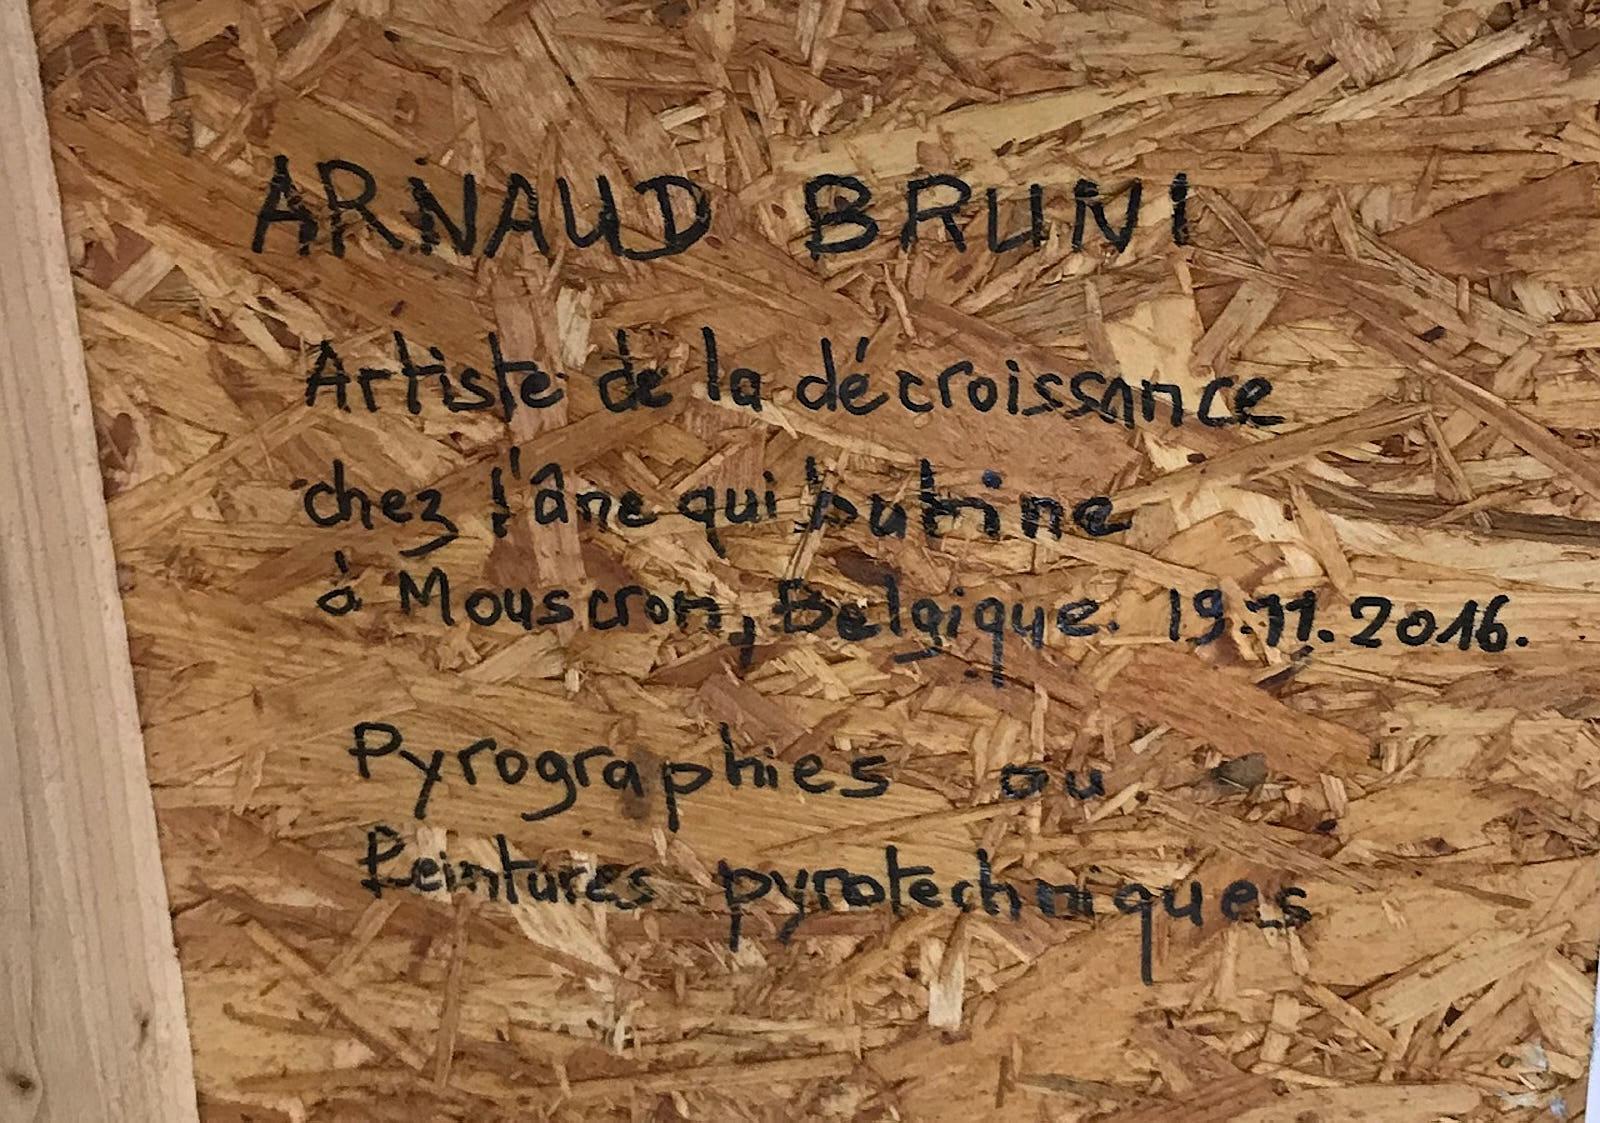 ARNAUD BRUNI
Artiste de la décroissance
chez l'âne qui butine
à Mouscron, Belgique. 19.11.2016.
Pyrographies ou
Peintures pyrotechniques